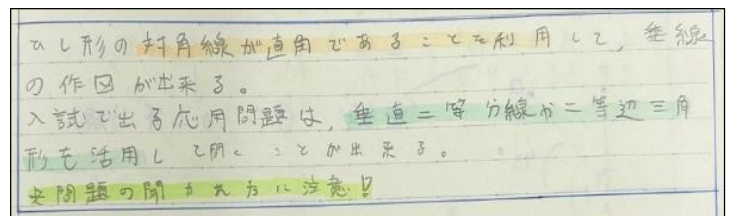 ひし形の対角線が直角であることを利用して、垂線
の作図が出来る。
入試で出る応用問題は、垂直二等分線や二等辺三角
形を活用して開くことが出来る。
※問題の聞かれ方に注意!?